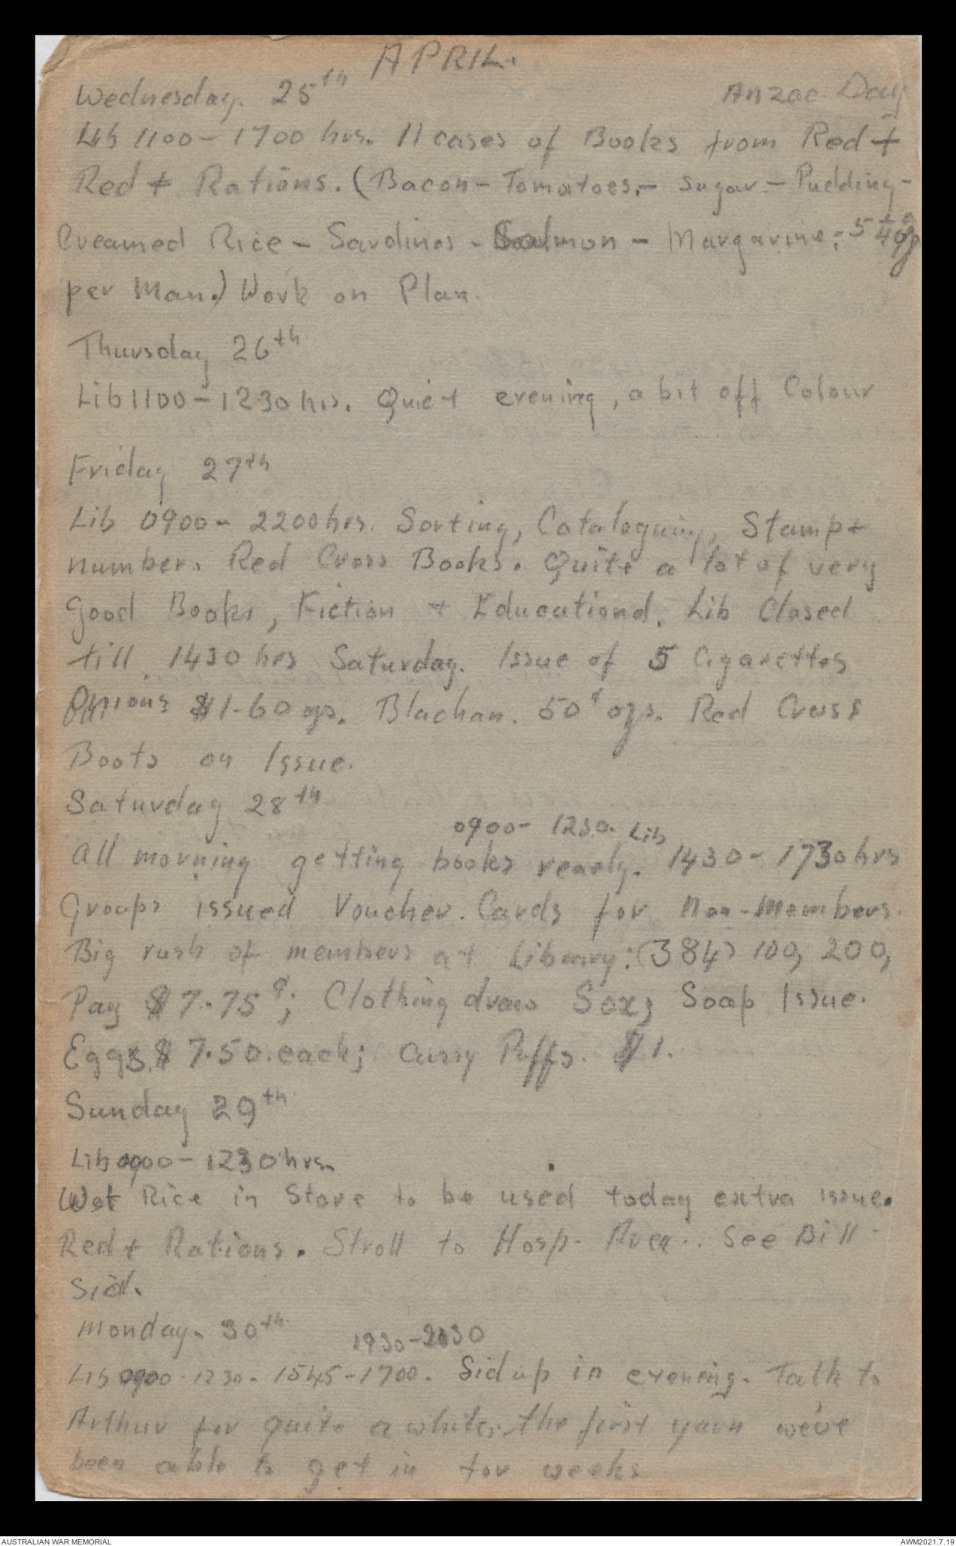 APRIL.
Wednesday. 25th Anzac Day
Lib 1100 - 1700 hrs. 11 cases of Books from Red +
Red + Rations. (Bacon - Tomatoes - Sugar - Pudding -
Creamed Rice - Sardines - Salmon - Margarine; 5
per Man.) Work on Plan.
Thursday 26th
Lib 1100 - 1230 hrs. Quiet evening, a bit off Colour
Friday 27th
Lib 0900 - 2200 hrs. Sorting, Cataloguing, Stamp +
number. Red Cross Books. Quite a lot of very
good Books, Fiction + Educational. Lib Closed
till 1430 hrs Saturday. Issue of 5 Cigarettes
Onions $1-60 ozs. Blachan. 50¢ ozs. Red Cross
Boots on Issue.
Saturday 28th
0900 - 1230. Lib
All morning getting books ready. 1430 - 1730 hrs
Groups issued Voucher. Cards for Non-Members.
Big rush of members at Library: (384) 100, 200,
Pay $7.75¢; Clothing draw Sox; Soap Issue.
Eggs $7.50. each; Curry Puffs. $1.
Sunday 29th
Lib 0900 - 1230 hrs.
Wet Rice in Store to be used today extra issue.
Red + Rations. Stroll to Hosp. Area. See Bill
Sid.
Monday. 30th
1930 - 2130
Lib 0900 - 1230. 1545 - 1700. Sid up in evening. Talk to
Arthur for quite a while, the first yarn we've
been able to get in for weeks